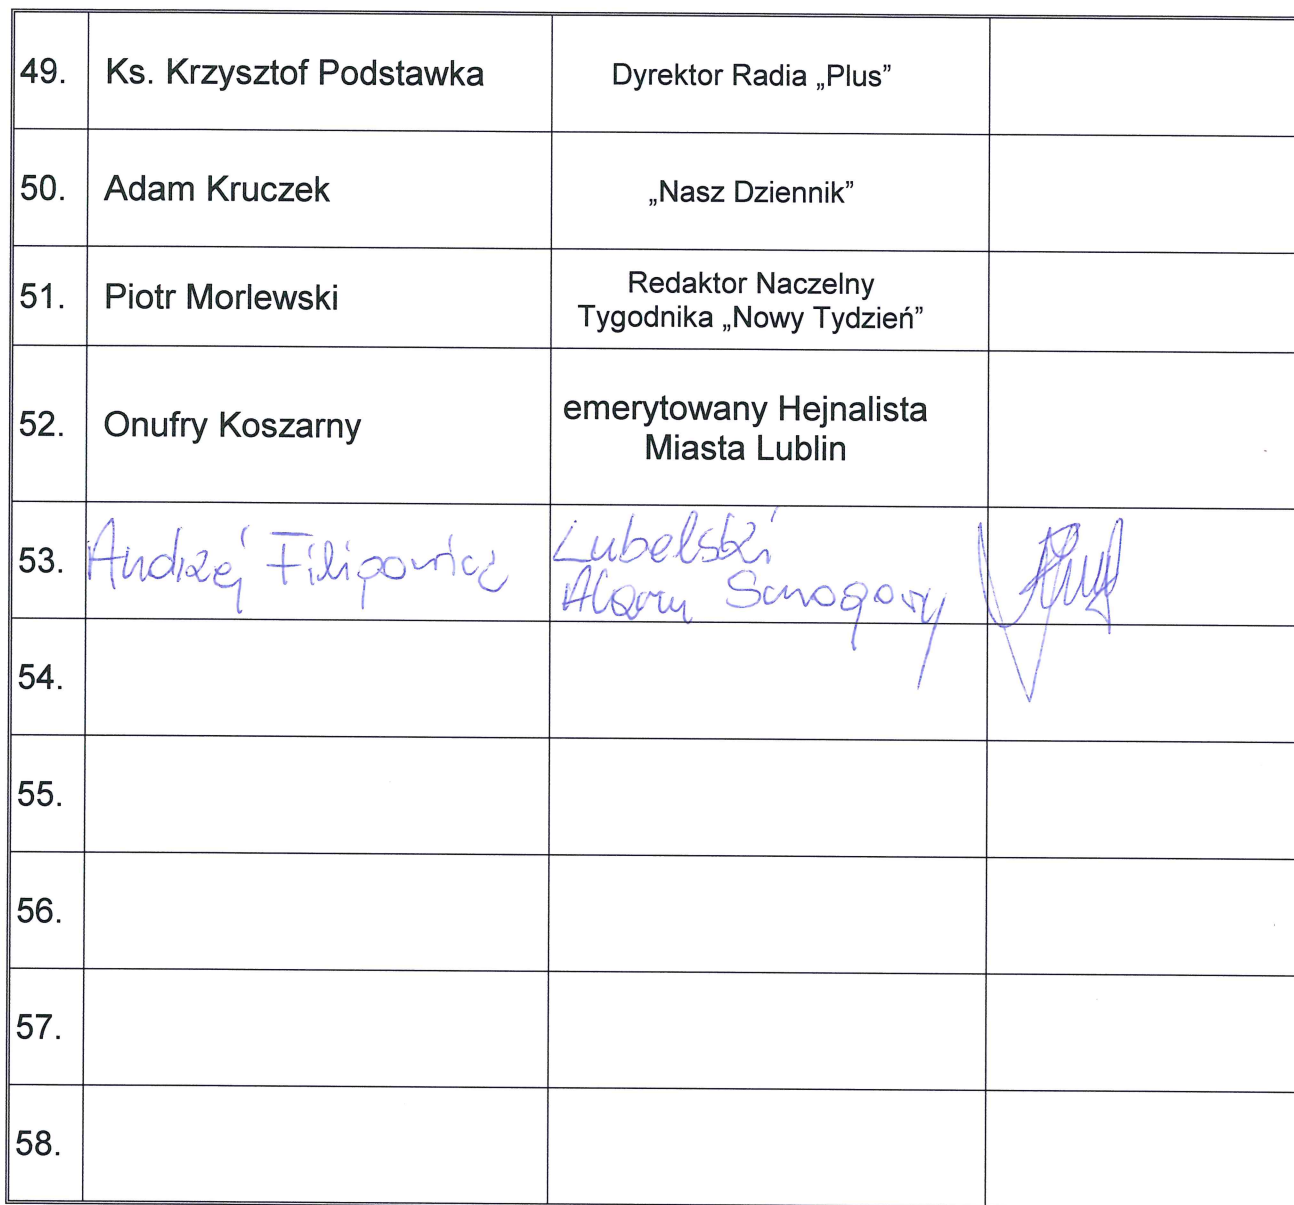 49. Ks. Krzysztof Podstawka Dyrektor Radia „Plus”
50. Adam Kruczek „Nasz Dziennik”
51. Piotr Morlewski Redaktor Naczelny
Tygodnika „Nowy Tydzień”
52. Onufry Koszarny emerytowany Hejnalista
Miasta Lublin
53. Andrzej Filipowicz Lubelski
Alarm Smogowy
54.
55.
56.
57.
58.